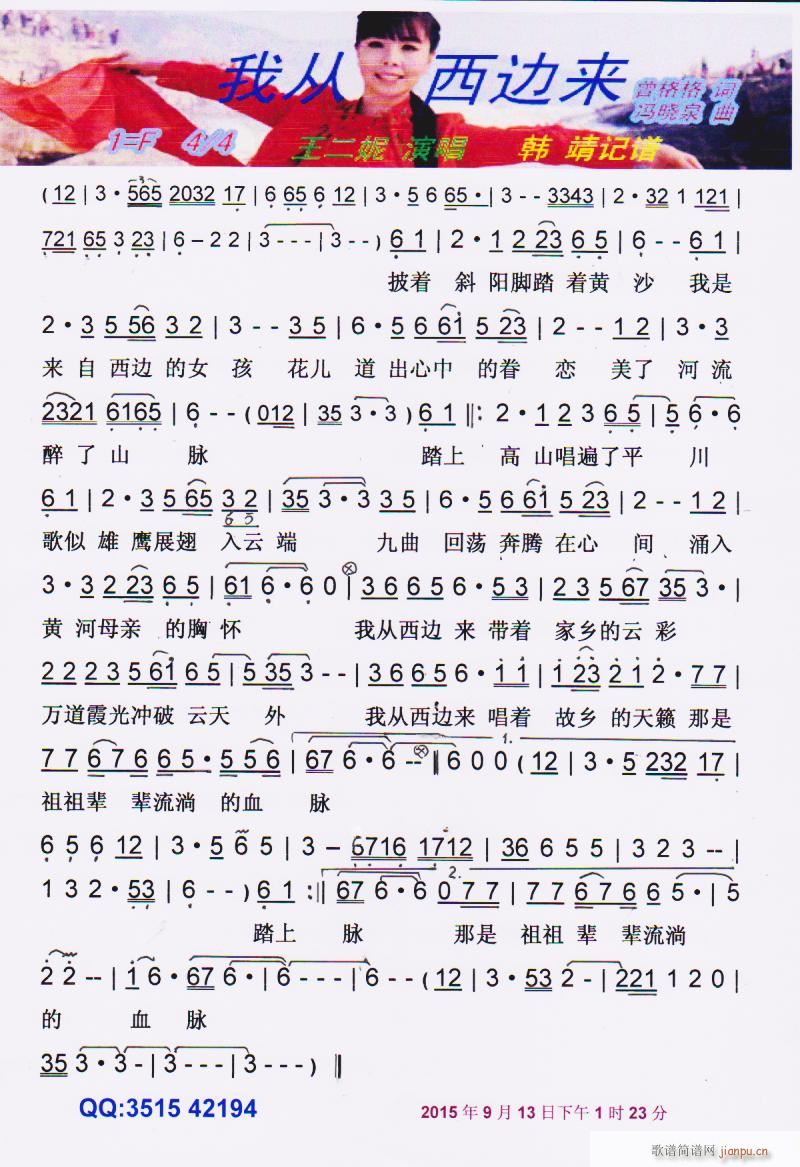 我从 西边来
曾格格 词
冯晓泉 曲
1=F 4/4 王二妮 演唱 韩 靖记谱
(12 | 3 · 565 2032 17 | 6 65 6 12 | 3 · 5 6 65 · | 3 - - 3343 | 2 · 32 1 121 |
721 65 3 23 | 6 – 2 2 | 3 - - - | 3 - - ) 6 1 | 2 · 1 2 23 6 5 | 6 - - 6 1 |
披着 斜 阳脚踏 着黄 沙 我是
2 · 3 5 56 3 2 | 3 - - 3 5 | 6 · 5 6 61 5 23 | 2 - - 1 2 | 3 · 3
来 自 西边 的女 孩 花儿 道 出心中 的眷 恋 美了 河 流
2321 6165 | 6 - - ( 012 | 35 3 · 3 ) 6 1 ‖: 2 · 1 2 3 6 5 | 5 6 · 6
醉 了 山 脉 踏上 高 山唱遍了平 川
6 1 | 2 · 3 5 65 3 2 | 35 3 · 3 3 5 | 6 · 5 6 61 5 23 | 2 - - 1 2 |
6 5
歌似 雄 鹰展翅 入云 端 九曲 回荡 奔腾 在心 间 涌入
3 · 3 2 23 6 5 | 61 6 · 6 0 | 3 6 6 5 6 · 5 3 | 2 3 5 67 35 3 · |
黄 河母亲 的胸 怀 我从西边 来 带着 家乡的云 彩
2 2 2 3 5 61 6 5 | 5 35 3 - - | 3 6 6 5 6 · 1 1 | 1 23 2 1 2 · 7 7 |
万道霞光冲破 云天 外 我从西边来 唱着 故乡 的天籁 那是
1.
7 7 6 7 6 6 5 · 5 5 6 | 67 6 · 6 -- ‖ 6 0 0 ( 12 | 3 · 5 232 17 |
祖祖辈 辈流淌 的血 脉
6 5 6 12 | 3 · 5 6 5 | 3 – 6716 1712 | 36 6 5 5 | 3 2 3 -- |
2.
1 3 2 · 53 | 6 - - ) 6 1 :‖ 67 6 · 6 0 7 7 | 7 7 6 7 6 6 5 · | 5
踏上 脉 那是 祖祖 辈 辈流淌
2 2 -- | 1 6 · 67 6 · | 6 - - - | 6 - - ( 12 | 3 · 53 2 - | 221 1 2 0 |
的 血 脉
35 3 · 3 - | 3 - - - | 3 - - - ) ‖
QQ:3515 42194
2015 年 9 月 13 日下午 1 时 23 分
歌谱简谱网 jianpu.cn